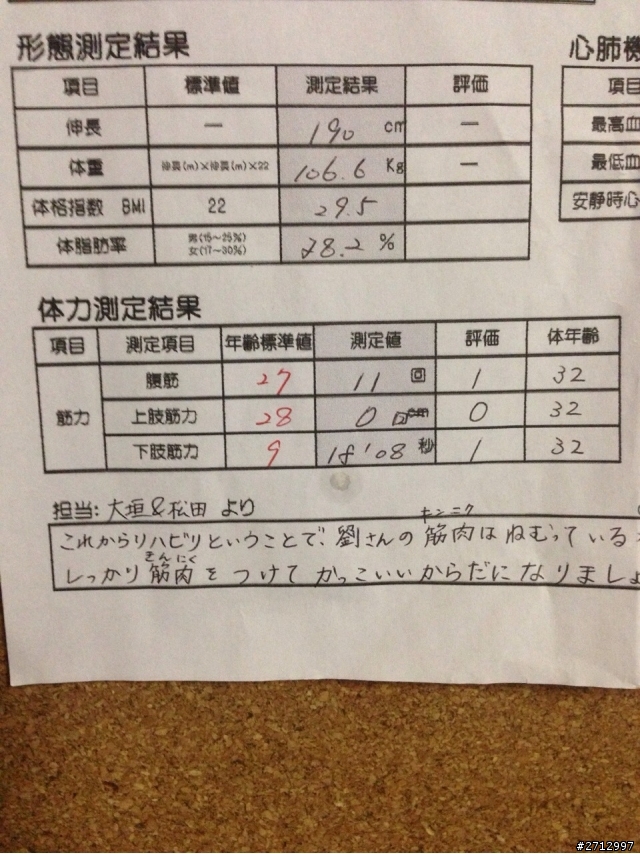 形態測定結果
項目 標準値 測定結果 評価
伸長 ー 190 cm ー
体重 身長(m)×身長(m)×22 106.6 Kg ー
体格指数 BMI 22 29.5
体脂肪率 男(15~25%) 女(17~30%) 28.2 %
心肺機
項目
最高血
最低血
安静時心
体力測定結果
項目 測定項目 年齢標準値 測定値 評価 体年齢
筋力 腹筋 27 11 回 1 32
上肢筋力 28 0 回 0 32
下肢筋力 9 18'08 秒 1 32
担当: 大垣&松田 より
キンニク
これからリハビリということで、劉さんの筋肉はねむっている
きんにく
しっかり筋肉をつけてかっこいいからだになりましょ
#2712997